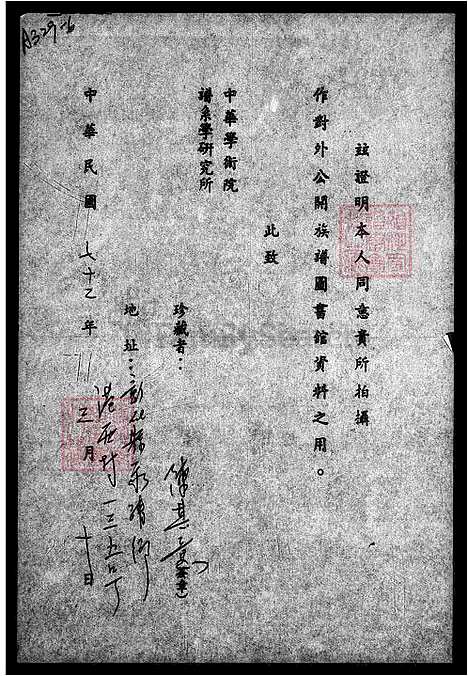 A329-6
茲證明本人同意貴所拍攝
作對外公開族譜圖書館資料之用。
此致
中華學術院
譜系學研究所
珍藏者：
(簽章)
地址：彰化縣永靖鄉
港西村一三五號
中華民國七十二年三月十日